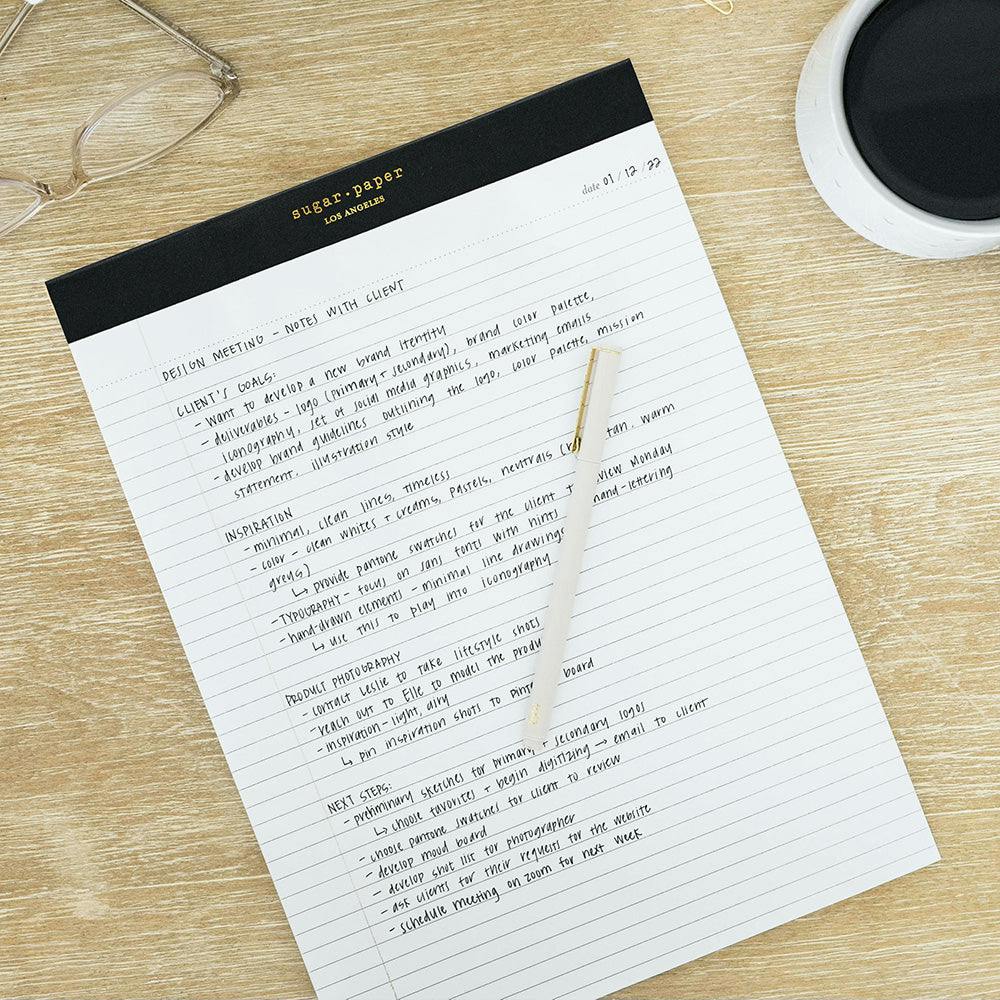 sugar·paper
LOS ANGELES
date 01 / 12 / 22
DESIGN MEETING - NOTES WITH CLIENT
CLIENT'S GOALS:
- want to develop a new brand itentity
- deliverables - logo (primary + secondary), brand color palette,
iconography, set of social media graphics, marketing emails
- develop brand guidelines outlining the logo, color palette, mission
statement, illustration style
INSPIRATION
- minimal, clean lines, timeless
- color - clean whites + creams, pastels, neutrals ( tan, warm
greys)
↳ provide pantone swatches for the client view Monday
- TYPOGRAPHY - focus on sans fonts with hints hand-lettering
- hand-drawn elements - minimal line drawings
↳ use this to play into iconography
PRODUCT PHOTOGRAPHY
- contact Leslie to take lifestyle shots
- reach out to Elle to model the
- inspiration - light, airy
↳ pin inspiration shots to board
NEXT STEPS:
- preliminary sketches for primary + secondary logos
↳ choose favorites + begin digitizing → email to client
- choose pantone swatches for client to review
- develop mood board
- develop shot list for photographer
- ask clients for their requests for the website
- schedule meeting on zoom for next week